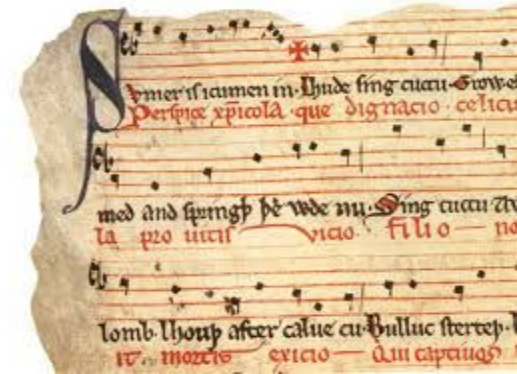 Svmer is icumen in· Lhude sing cuccu· Growe
Perspice xp̄icola· que dignacio· celicu
med and springþ þe wde nu· Sing cuccu
la pro uitis vicio filio no
lomb· lhouþ after calue cu· Bulluc sterteþ·
it mortis exicio Qui captiuos